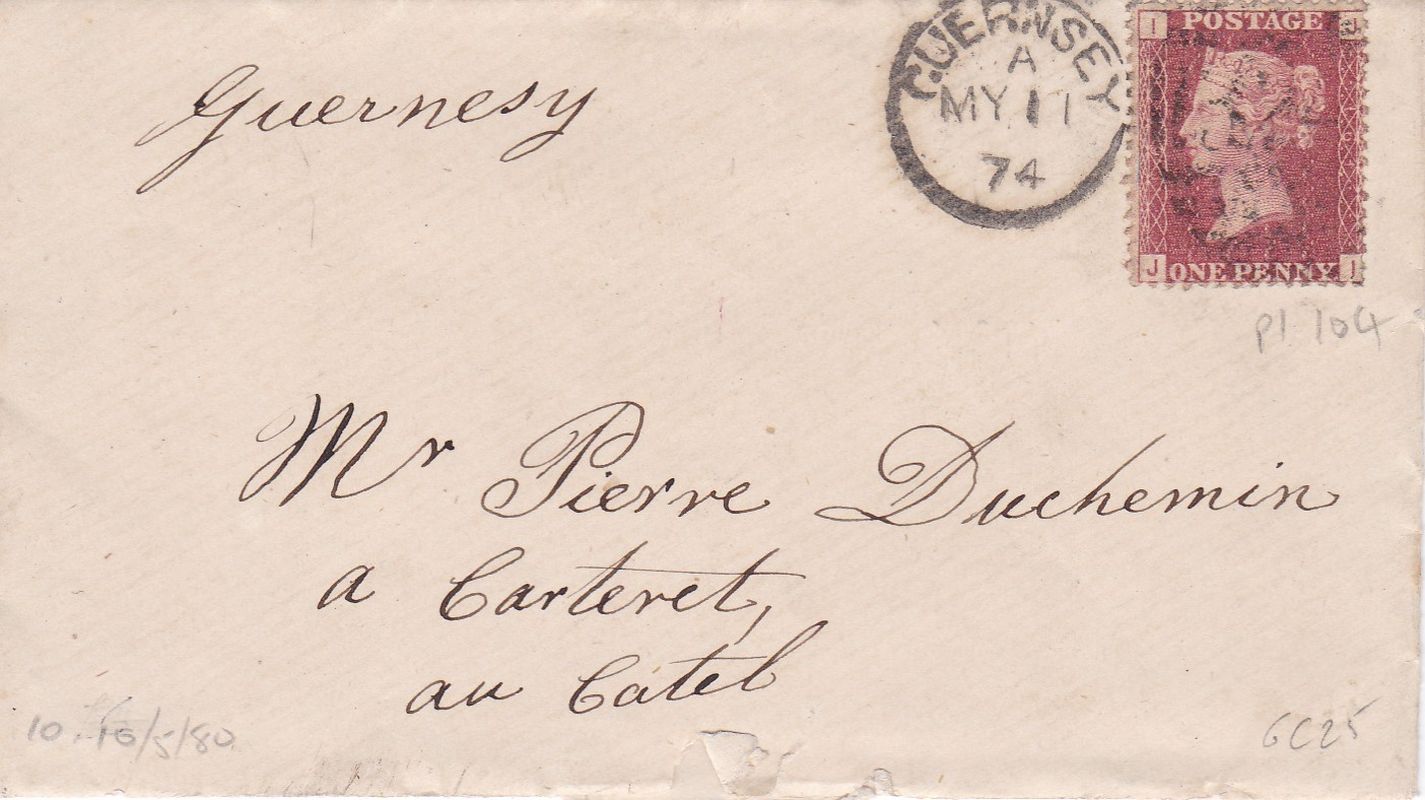 Guernesy
GUERNSEY
A
MY 11
74
I POSTAGE J
J ONE PENNY I
pl 104
Mr Pierre Duchemin
a Carteret,
au Catel
10. 16/5/80
GC25